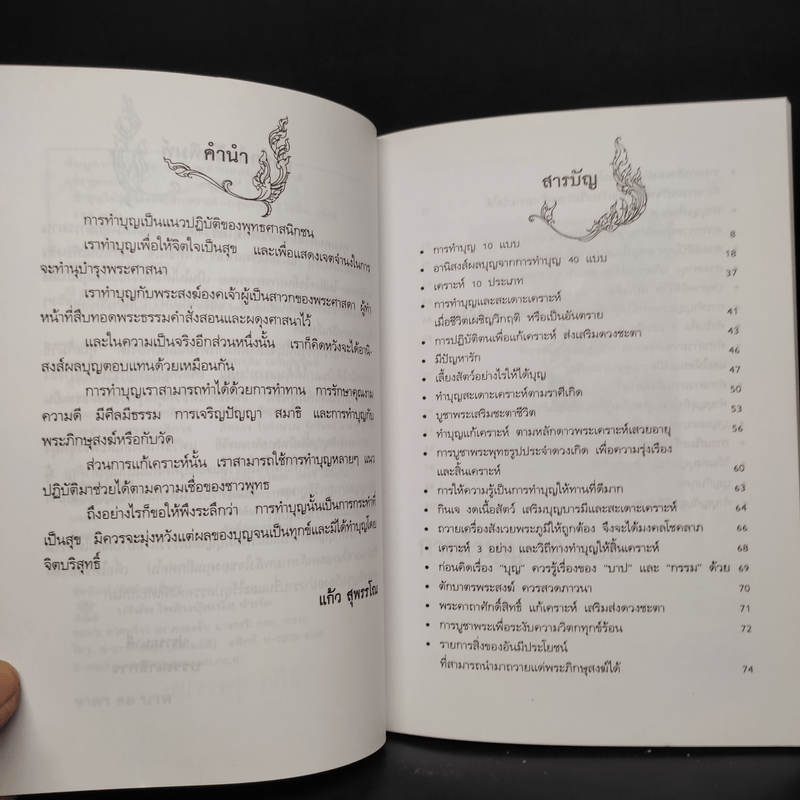 คำนำ
การทำบุญเป็นแนวปฏิบัติของพุทธศาสนิกชน
เราทำบุญเพื่อให้จิตใจเป็นสุข และเพื่อแสดงเจตจำนงในการ
จะทำนุบำรุงพระศาสนา
เราทำบุญกับพระสงฆ์องคเจ้าผู้เป็นสาวกของพระศาสดา ผู้ทำ
หน้าที่สืบทอดพระธรรมคำสั่งสอนและผดุงศาสนาไว้
และในความเป็นจริงอีกส่วนหนึ่งนั้น เราก็คิดหวังจะได้อานิ-
สงส์ผลบุญตอบแทนด้วยเหมือนกัน
การทำบุญเราสามารถทำได้ด้วยการทำทาน การรักษาคุณงาม
ความดี มีศีลมีธรรม การเจริญปัญญา สมาธิ และการทำบุญกับ
พระภิกษุสงฆ์หรือกับวัด
ส่วนการแก้เคราะห์นั้น เราสามารถใช้การทำบุญหลายๆ แนว
ปฏิบัติมาช่วยได้ตามความเชื่อของชาวพุทธ
ถึงอย่างไรก็ขอให้พึงระลึกว่า การทำบุญนั้นเป็นการกระทำที่
เป็นสุข มิควรจะมุ่งหวังแต่ผลของบุญจนเป็นทุกข์และมิได้ทำบุญโดย
จิตบริสุทธิ์
แก้ว สุพรรโณ
สารบัญ
• การทำบุญ 10 แบบ 8
• อานิสงส์ผลบุญจากการทำบุญ 40 แบบ 18
• เคราะห์ 10 ประเภท 37
• การทำบุญและสะเดาะเคราะห์
เมื่อชีวิตเผชิญวิกฤติ หรือเป็นอันตราย 41
• การปฏิบัติตนเพื่อแก้เคราะห์ ส่งเสริมดวงชะตา 43
• มีปัญหารัก 46
• เลี้ยงสัตว์อย่างไรให้ได้บุญ 47
• ทำบุญสะเดาะเคราะห์ตามราศีเกิด 50
• บูชาพระเสริมชะตาชีวิต 53
• ทำบุญแก้เคราะห์ ตามหลักดาวพระเคราะห์เสวยอายุ 56
• การบูชาพระพุทธรูปประจำดวงเกิด เพื่อความรุ่งเรือง
และสิ้นเคราะห์ 60
• การให้ความรู้เป็นการทำบุญให้ทานที่ดีมาก 63
• กินเจ งดเนื้อสัตว์ เสริมบุญบารมีและสะเดาะเคราะห์ 64
• ถวายเครื่องสังเวยพระภูมิให้ถูกต้อง จึงจะได้มงคลโชคลาภ 66
• เคราะห์ 3 อย่าง และวิถีทางทำบุญให้สิ้นเคราะห์ 68
• ก่อนคิดเรื่อง "บุญ" ควรรู้เรื่องของ "บาป" และ "กรรม" ด้วย 69
• ตักบาตรพระสงฆ์ ควรสวดภาวนา 70
• พระคาถาศักดิ์สิทธิ์ แก้เคราะห์ เสริมส่งดวงชะตา 71
• การบูชาพระเพื่อระงับความวิตกทุกข์ร้อน 72
• รายการสิ่งของอันมีประโยชน์
ที่สามารถนำมาถวายแด่พระภิกษุสงฆ์ได้ 74